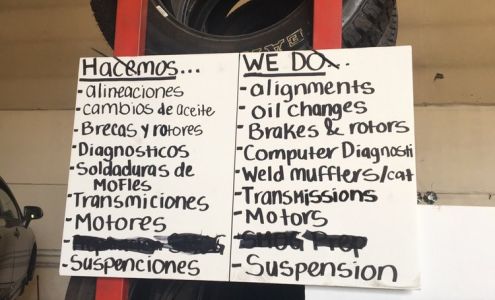 Hacemos...
-alineaciones
-cambios de aceite
-Brecas y rotores
-Diagnosticos
-Soldaduras de
MOFles
-Transmiciones
-Motores
-Suspenciones
WE DO...
-alignments
-oil changes
-Brakes & rotors
-Computer Diagnosti
-Weld mufflers/cat
-Transmissions
-Motors
-SMOG Prep
-Suspension